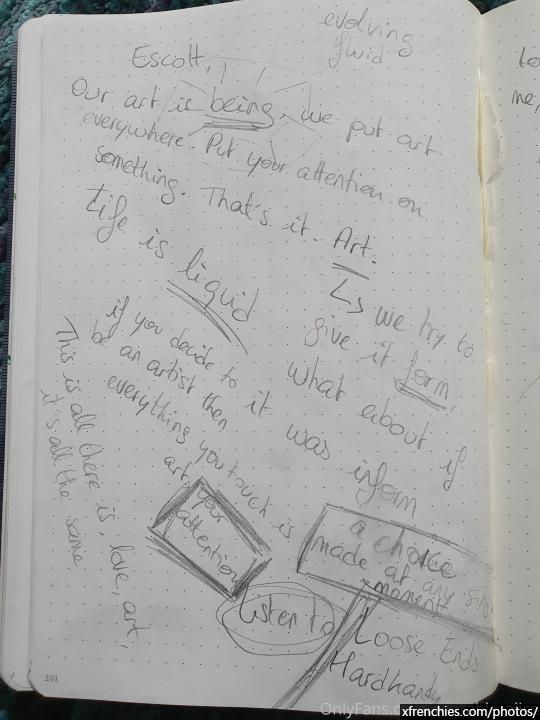 evolving
fluid
Escott,
Our art is being, we put art
everywhere. Put your attention on
something. That's it. Art.
↳ we try to
give it form,
what about if
it was inform
Life is liquid
if you decide to
be an artist then
everything you touch is
art, your
attention
This is all there is, love, art,
it's all the same
a choice
made at any
moment
Listen to
Loose Ends
Hardhandu
201
to
me,
OnlyFans.c
xfrenchies.com/photos/